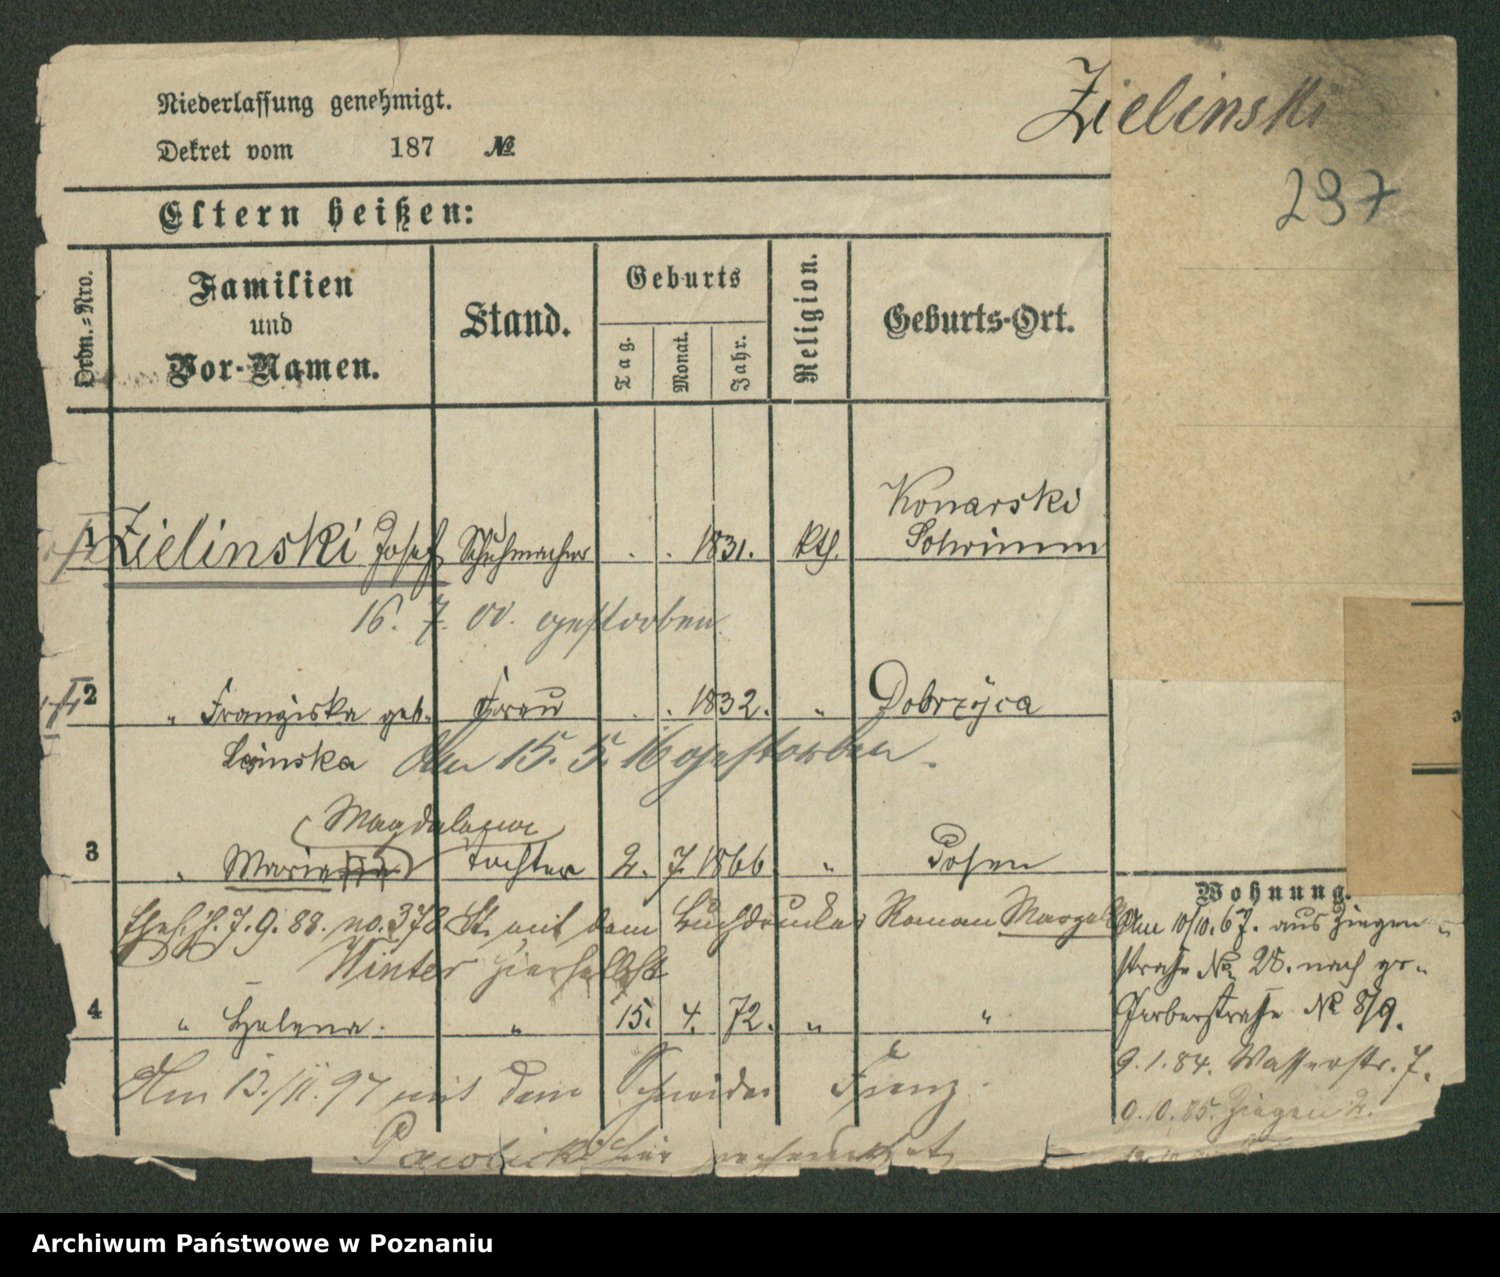 Niederlassung genehmigt.
Zielinski
Dekret vom 187 №
237
Eltern heißen:
Ordn.=Nro.
Familien
und
Vor-Namen.
Stand.
Geburts
Tag.
Monat.
Jahr.
Religion.
Geburts-Ort.
1 Zielinski Josef Schuhmacher . . 1831. kth. Konarski
16. 7. 00. gestorben
2 " Franziska geb. Frau . . 1832. " Dobrzyca
Am 15. 5. 16 gestorben.
Magdalena
3 " Maria Tochter 2. 7. 1866 " Posen
7. 9. 88. no. 378 mit dem Buchdrucker Roman
Winter hierselbst
4 " Helena. " 15. 4. 72. " "
Am 13./11. 97 mit dem Schneider Franz
hier
Wohnung.
Am 10/10. 67. aus Ziegen-
straße № 28. nach gr.
Gerberstraße № 8/9.
9. 1. 84. Wasserstr. 7.
9. 10. 85. Ziegen 2.
Archiwum Państwowe w Poznaniu